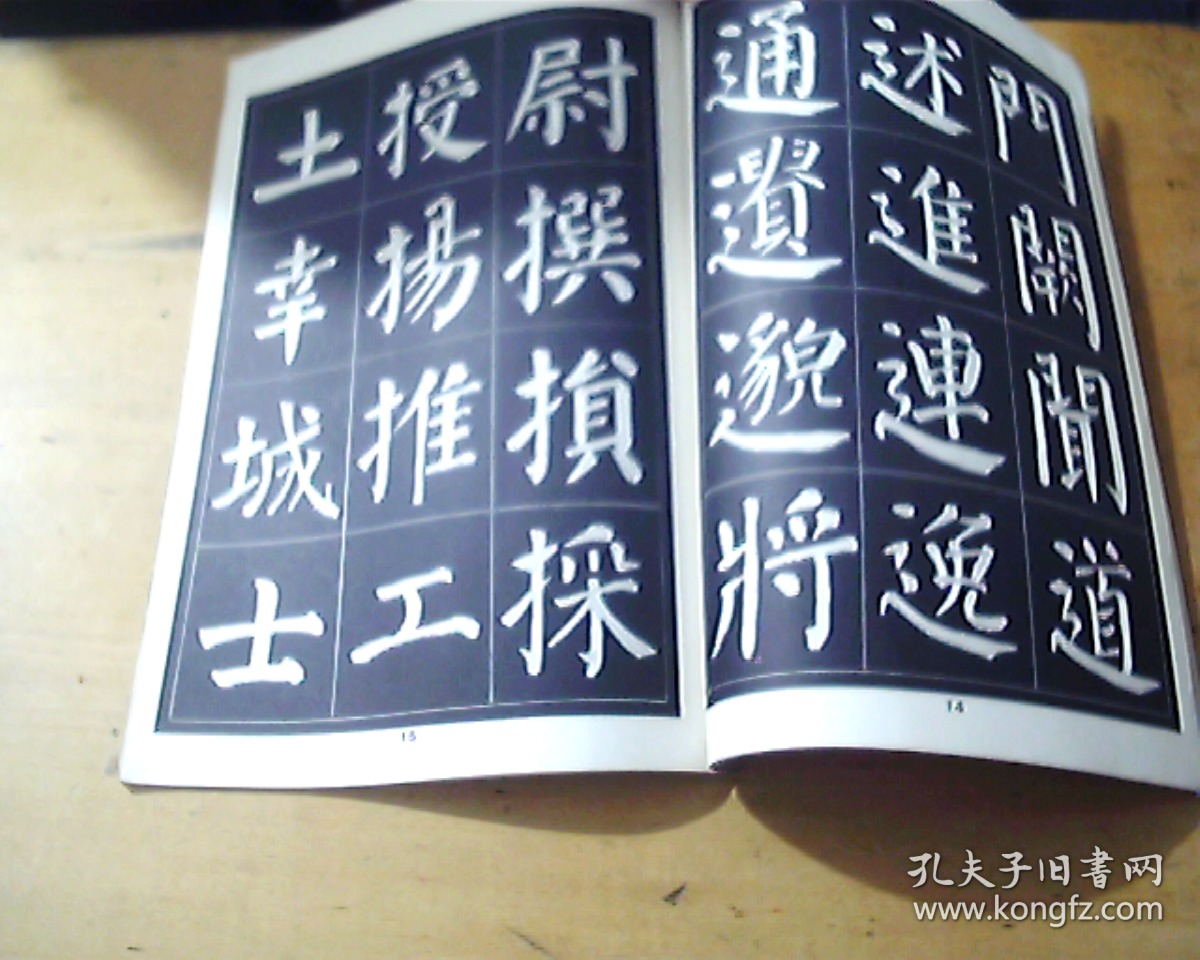 門闕聞道
述進連逸
通遺邈將
14
尉撰損採
授揚推工
土幸城士
15
孔夫子旧书网
www.kongfz.com